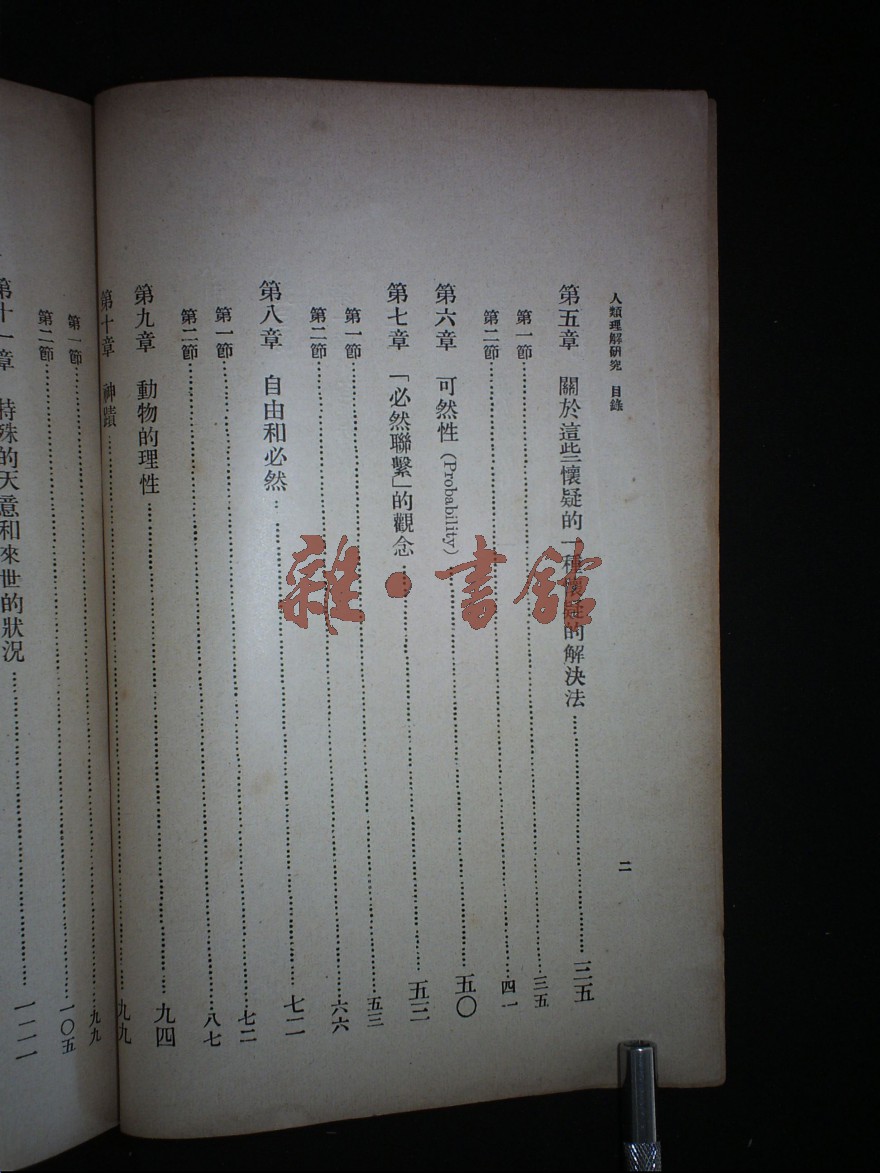 人類理解研究　目錄
二
第五章　關於這些懷疑的一種懷疑的解決法……三五
第一節……三五
第二節……四一
第六章　可然性（Probability）……五〇
第七章　「必然聯繫」的觀念……五三
第一節……五三
第二節……六六
第八章　自由和必然……七二
第一節……七二
第二節……八七
第九章　動物的理性……九四
第十章　神蹟……九九
第一節……九九
第二節……一〇五
第十一章　特殊的天意和來世的狀況……一二一
雜·書館